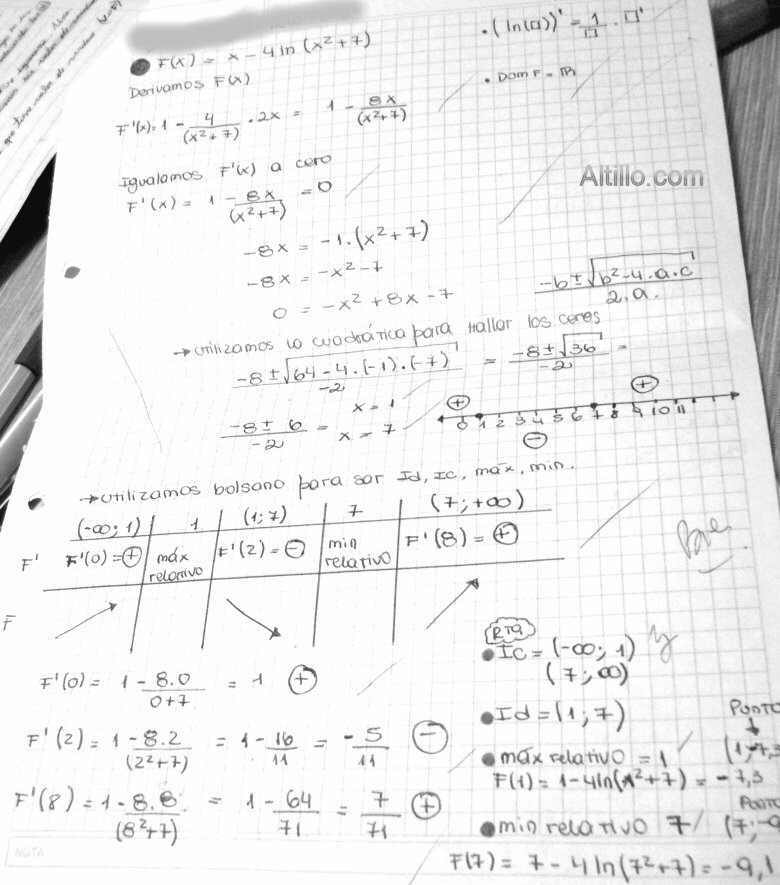 F(x) = x - 4 ln (x² + 7)
• (ln(□))' = 1/□ . □'
Derivamos F(x)
• Dom F = ℝ
F'(x) = 1 - 4/(x² + 7) . 2x = 1 - 8x/(x² + 7)
Igualamos F'(x) a cero
Altillo.com
F'(x) = 1 - 8x/(x² + 7) = 0
-8x = -1.(x² + 7)
-8x = -x² - 7
0 = -x² + 8x - 7
-b ± √b² - 4.a.c / 2.a.
→ utilizamos la cuadrática para hallar los ceros
-8 ± √64 - 4.(-1).(-7) / -2 = -8 ± √36 / -2 =
-8 ± 6 / -2 = x = 1
x = 7
⊕ ⊕
0 1 2 3 4 5 6 7 8 9 10 11
⊖
→ utilizamos bolsano para sar Id, Ic, máx, min.
(-∞; 1) 1 (1; 7) 7 (7; +∞)
F' F'(0) = ⊕ máx relativo F'(2) = ⊖ min relativo F'(8) = ⊕
F
F'(0) = 1 - 8.0/0+7 = 1 ⊕
F'(2) = 1 - 8.2/(2²+7) = 1 - 16/11 = -5/11 ⊖
F'(8) = 1 - 8.8/(8²+7) = 1 - 64/71 = 7/71 ⊕
RTA
Ic = (-∞; 1)
(7; ∞)
Id = (1; 7)
PUNTO
máx relativo = 1
(1; -7,3
F(1) = 1 - 4ln(1² + 7) = -7,3
PUNTO
min relativo 7
(7; -9
F(7) = 7 - 4 ln (7² + 7) = -9,1
NOTA